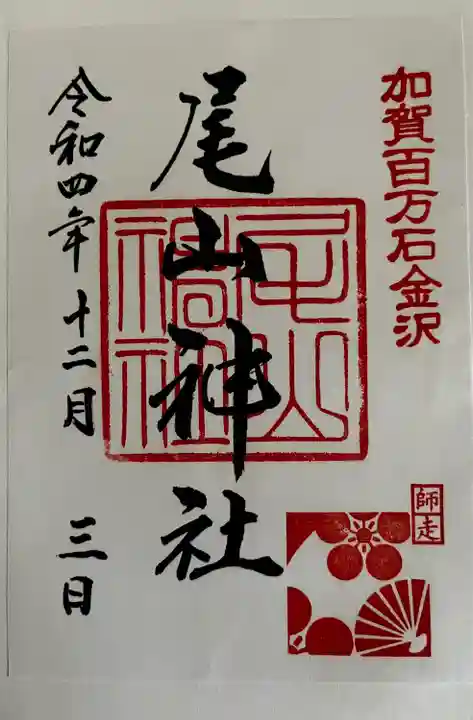 加賀百万石金沢
尾山神社
師走
令和四年十二月三日